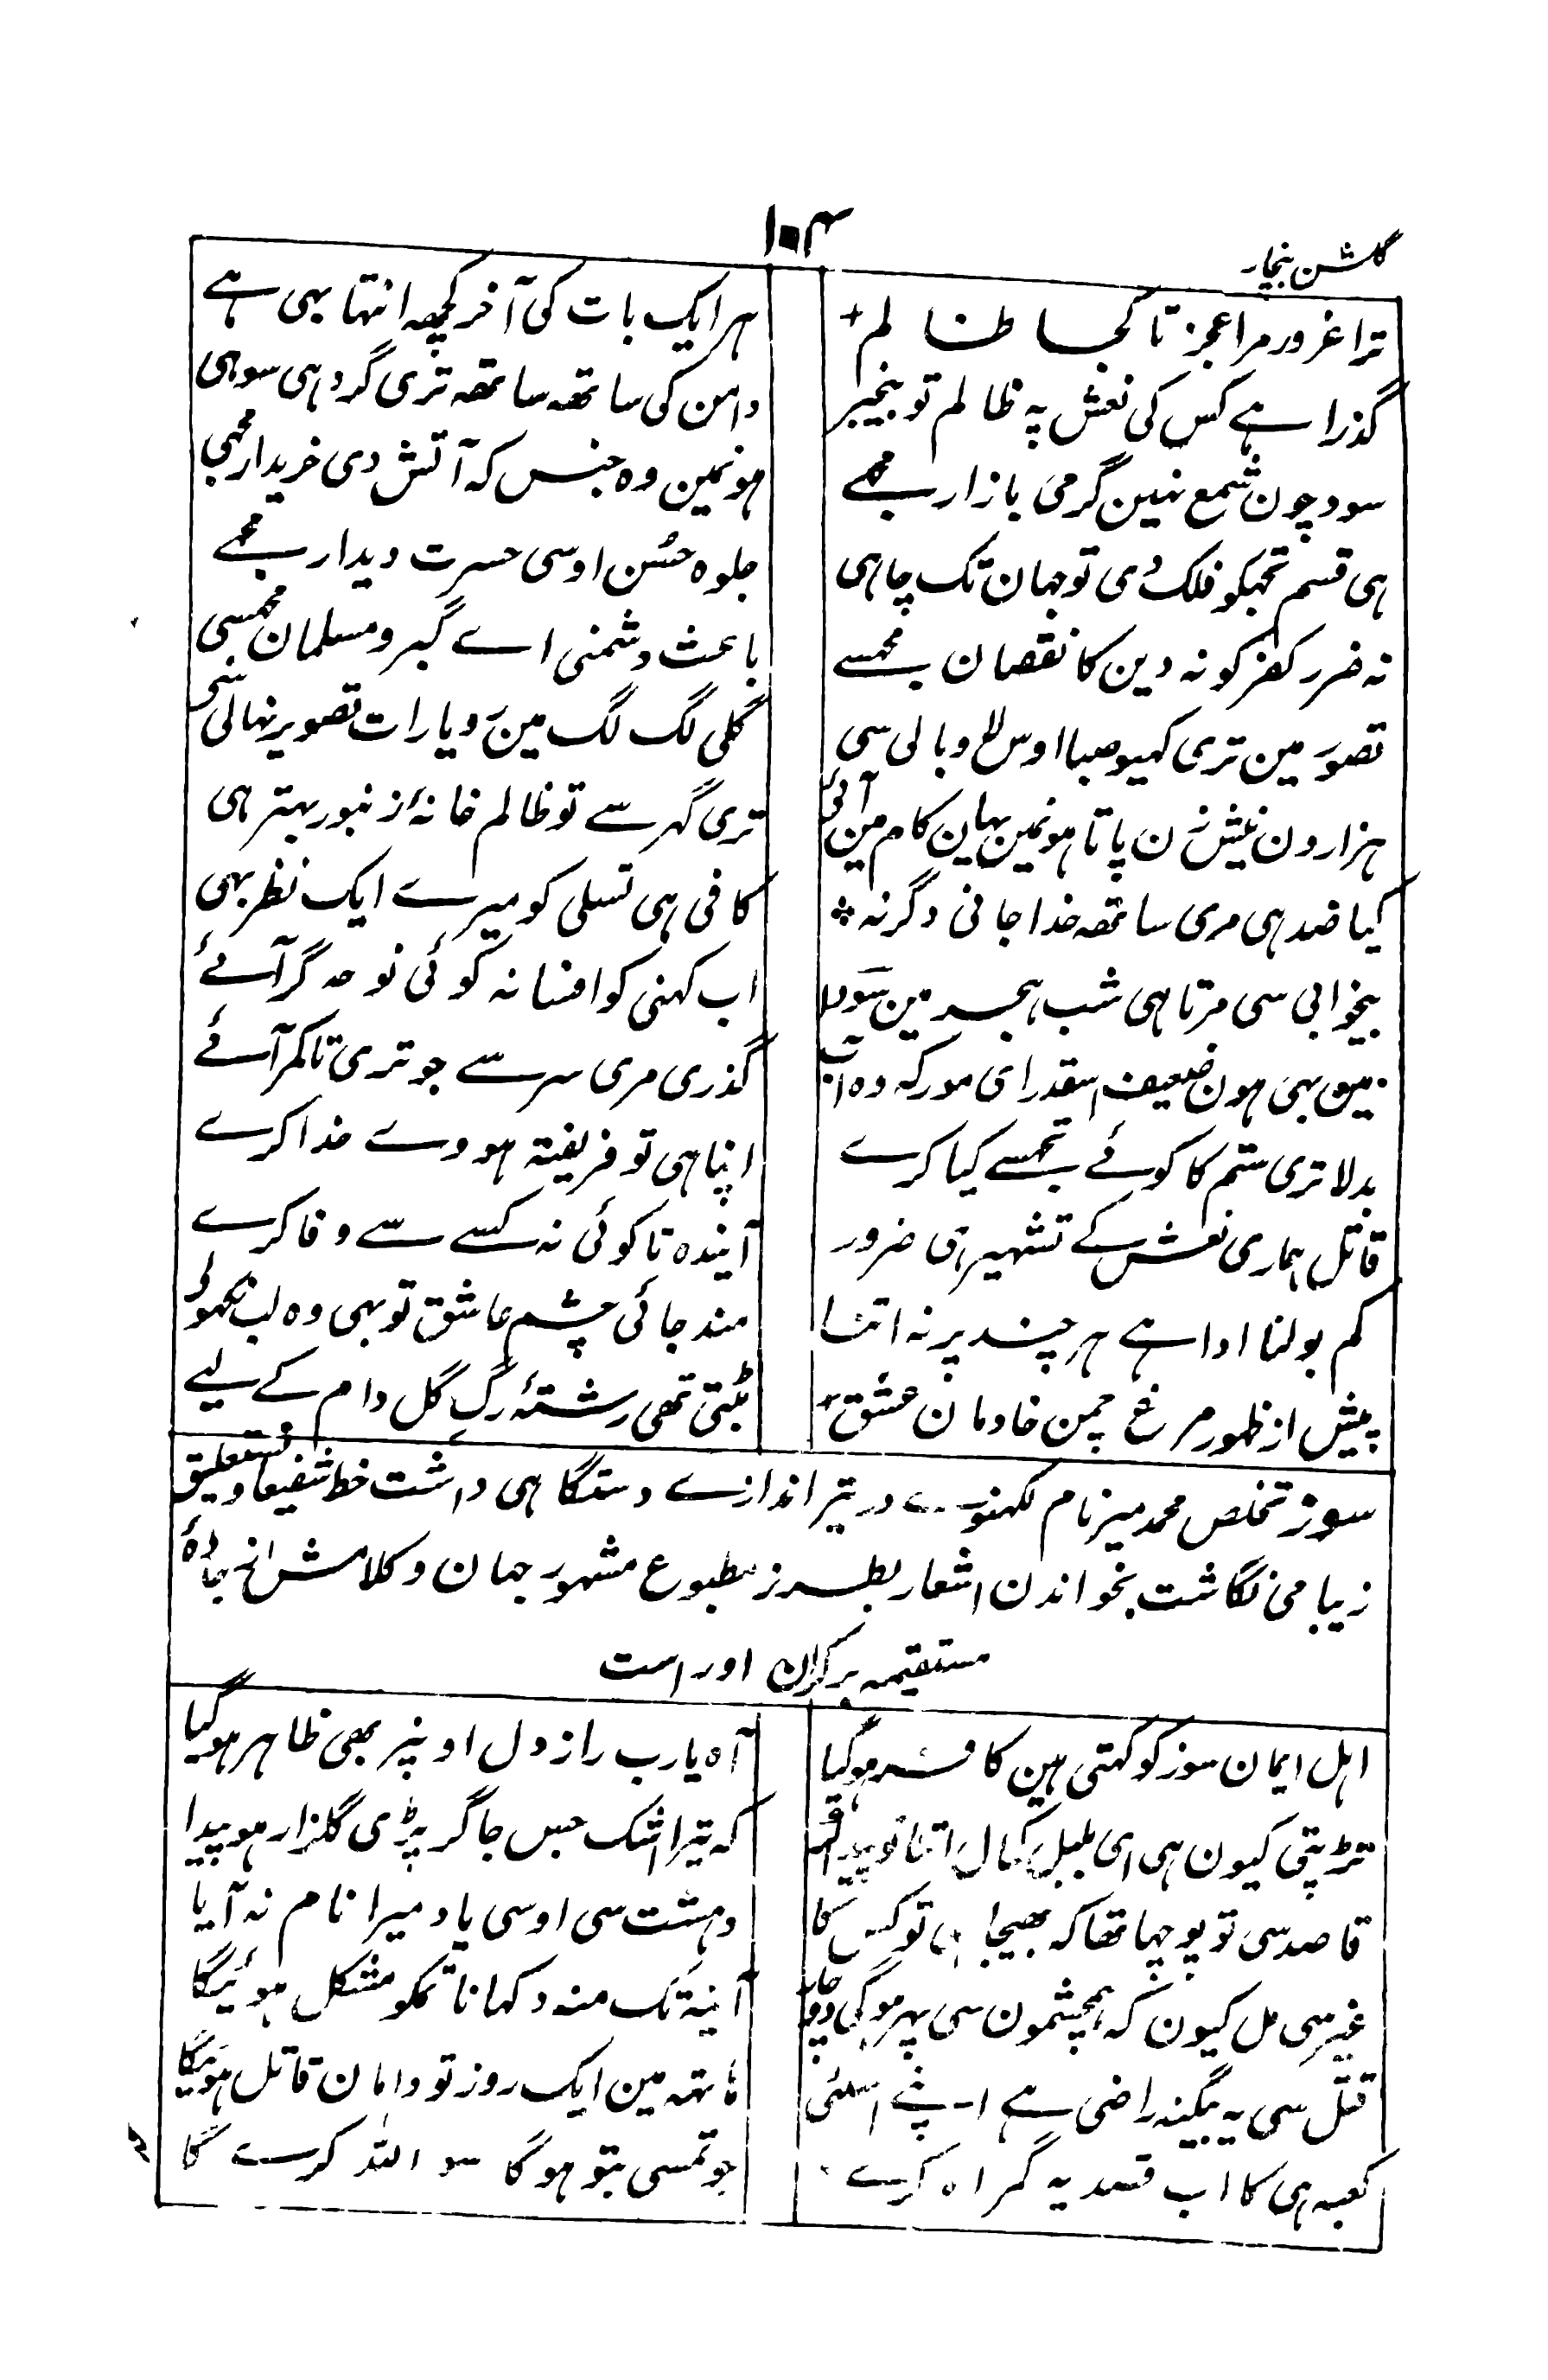 گلشن بیخار
۱۰۴
ترا غرور مرا عجز تا کجا ظالم
ہر ایک بات کی آخر کچھہ انتہا بہی ہے
گذرا ہے کس کی نعش پہ ظالم تو بیخبر
دامن کی ساتھہ ساتھہ تری گرد ہی سو ہی
سود چون شمع نہین گرمی بازار مجھے
ہونمین وہ جنس کہ آتش دی خریدار مجھی
ہی قسم تجہکو فلک دی تو جہان تک چاہی
جلوہ حسن اوسی حسرت دیدار مجھے
نہ ضرر کفر کو نہ دین کا نقصان مجھسے
باعث دشمنی اے گبر و مسلمان مجھسی
تصور مین تری کہیو صبا اوس لا وبالی سی
گلی لگ لگ مین رویا رات تصویر نہالی سی
ہزارون نیش زن پاتا ہونمین یہان کام مین آئی
تری گہر سے تو ظالم خانۂ زنبور بہتر ہی
کیا ضد ہی مری ساتھہ خدا جانی وگرنہ
کافی ہی تسلی کو میرے ایک نظر بہی
بیخوابی سی مرتا ہی شب ہجر مین سودا
اب کہنی کو افسانہ کوئی نوحہ گر آئے
مین بہی ہون ضعیف اسقدر ای مور کہ وہ آب
گذری مری سر سے جو تری تا کمر آئے
بدلا تری ستم کا کوئے تجھسے کیا کرے
اپنا ہی تو فریفتہ ہووے خدا کرے
قاتل ہماری نعش کے تشہیر ہی ضرور
آیندہ تا کوئی نہ کسے سے وفا کرے
کم بولنا ادا ہے ہر چند پر نہ اتنا
مند جائی چشم عاشق تو بہی وہ لب نکہولی
پیش از ظہور مرغ چمن خادمان عشق
بٹتی تھی رشتۂ رگ گل دام کے لیے
سوز تخلص محمد میر نام لکہنوے در تیر اندازے دستگاہی داشت خط شفیعا و نستعلیق
زیبا می نگاشت بخواندن اشعار بطرز مطبوع مشہور جہان و کلامش از جادۂ
مستقیمہ بر کران اوراست
اہل ایمان سوز کو کہتی ہین کافر ہوگیا
آہ یا رب راز دل اونپر بھی ظاہر ہوگیا
تڑپتی کیون ہی ای بلبل کمال اتنا تو پیدا کر
کہ تیرا اشک جس جا گر پڑی گلزار ہو پیدا
قاصد سی تو پوچہا تھا کہ بھیجا ہی تو کس کا
دہشت سی اوسی یاد میرا نام نہ آیا
غیر سی مل کیون کہ ہمچشمون سی پہر ہوگی دو چار
آئینہ تک منہ دکہانا تمکو مشکل ہوئیگا
قتل سی یہ بیگنہ راضی ہے اپنے اسلئی
ہاتہہ مین ایک روز تو دامان قاتل ہوئیگا
کعبہ ہی کا اب قصد یہ گمراہ کرے
جو تمسی بتو ہوگا سو اللہ کرے گا